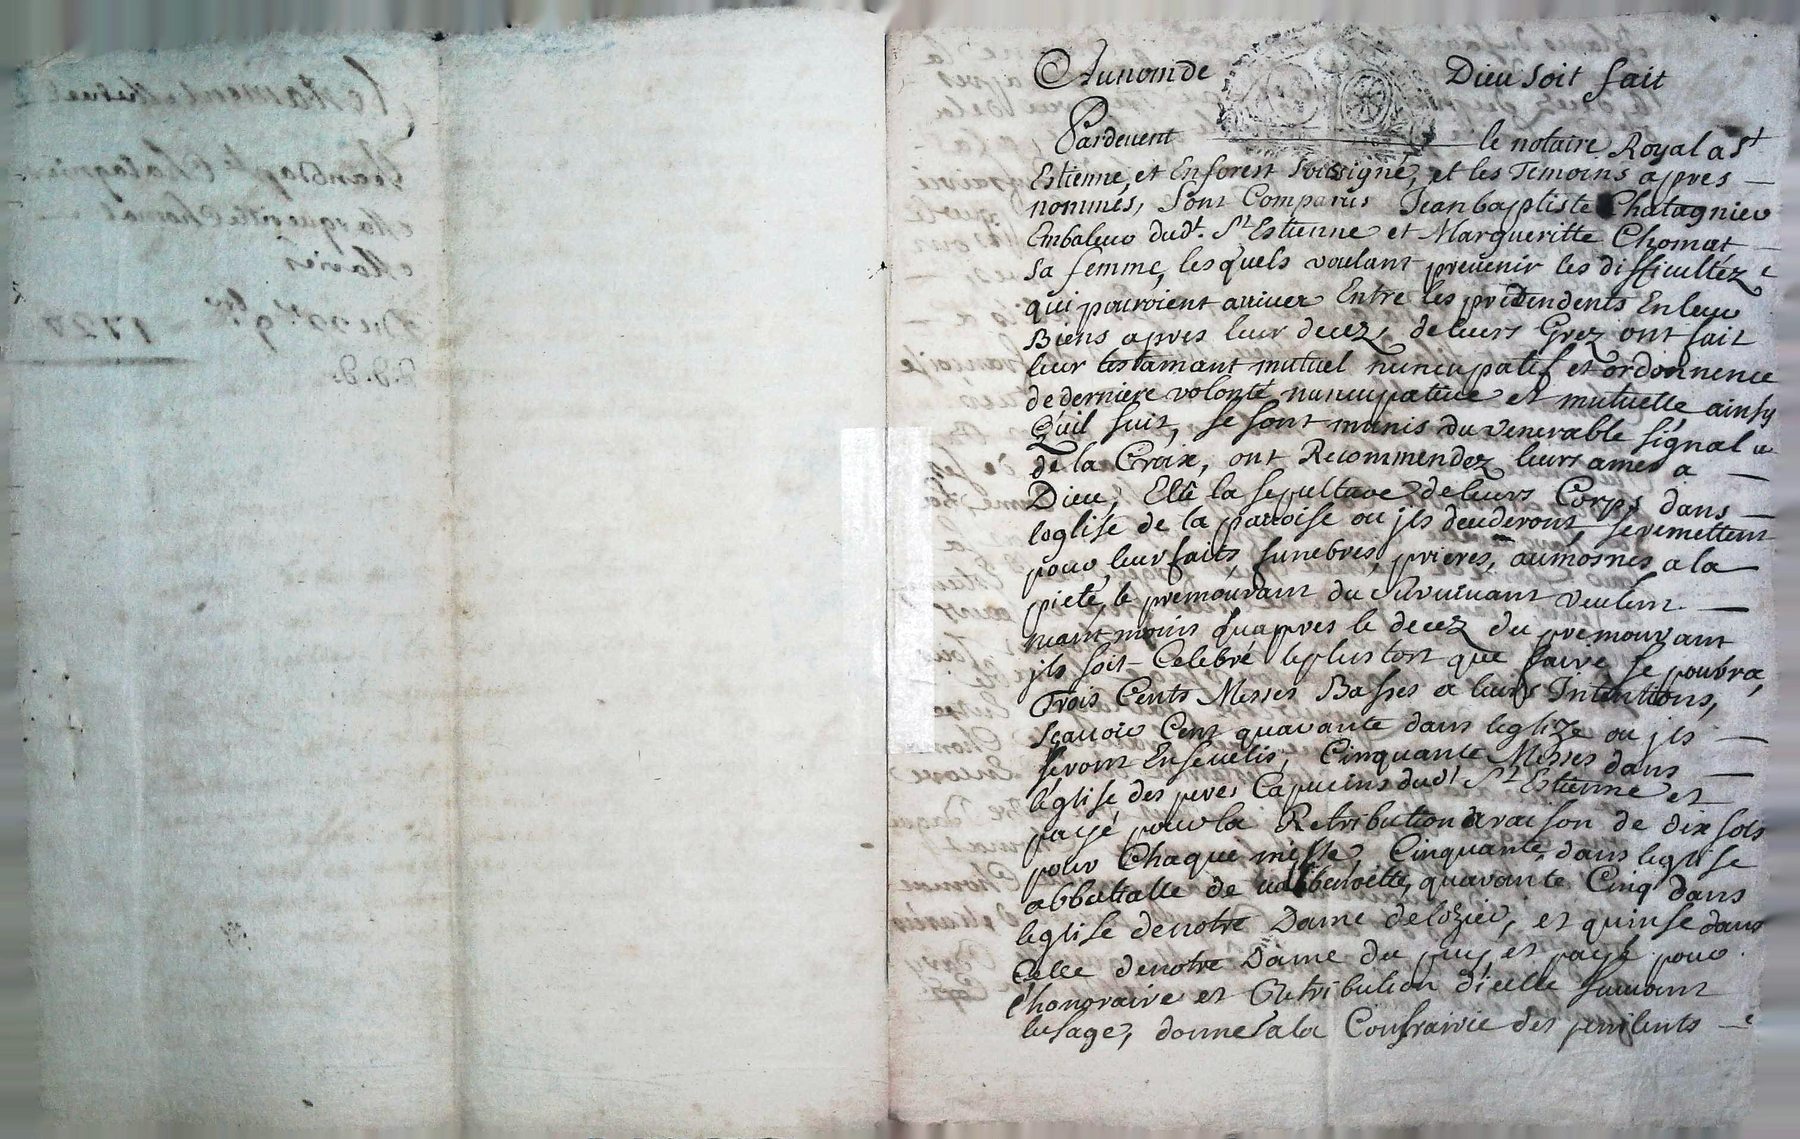 Au nom de Dieu soit fait
Pardevent le notaire Royal a St
Estienne, et Enforest Soissigné, et les Temoins apres
nommés, Sont Comparus Jeanbaptiste Chatagnier
Embaleur dudt. St Estienne et Margueritte Chomat
sa femme, lesquels voulant prevenir les difficultéz
qui pouroient arriver Entre les prétendents En leur
Biens apres leur decez, de leurs Grez ont fait
leur testamant mutuel nuncupatif et ordonnence
de derniere volonté nuncupative et mutuelle ainsy
Quil suit, se sont munis du venerable signal
de la Croix, ont Recommendez leurs ames a
Dieu, Elû la sepulture de leurs Corps dans
leglise de la paroise ou jls decederont, se remettent
pour leur faits funebres, prieres, aumosnes a la
pieté le premourant du Survivant veulent
neant moins quapres le decez du premourant
jls soit Celebré le plus tost que faire se pouvra,
Trois Cents Messes Basses a leurs Intentions,
Sçavoir Cent quarante dans leglize ou jls
seront Ensevelis, Cinquante Messes dans
léglise des peres Capucins dudt St Estienne et
payé pour la Retribution a raison de dix sols
pour Chaque messe, Cinquante dans leglise
abbatialle de valbenoitte, quarante Cinq dans
leglise de notre Dame de lozier, et quinse dans
Celle de notre Dame du puy et payé pour
lhonoraire et Retribution dicelle suivant
lusage, donne a la Confrairie des penitents
Testament mutuel
Jean Bapte Chatagnier
Margueritte Chomat
Mariés
Du 1727